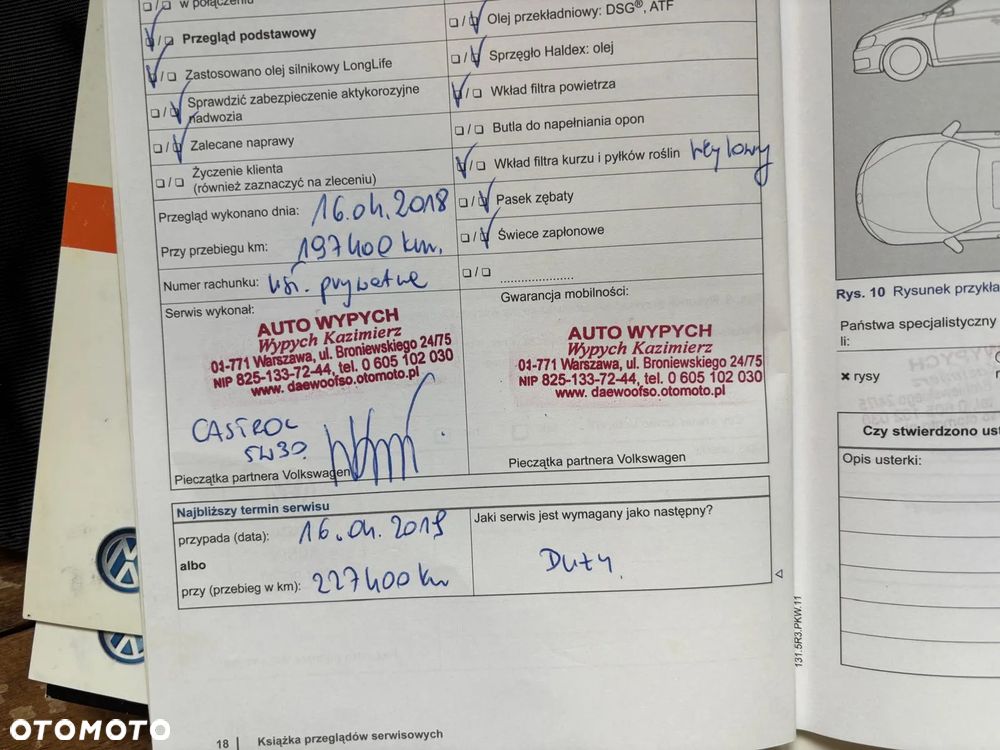 w połączeniu
Przegląd podstawowy
Zastosowano olej silnikowy LongLife
Sprawdzić zabezpieczenie aktykorozyjne
nadwozia
Zalecane naprawy
Życzenie klienta
(również zaznaczyć na zleceniu)
Przegląd wykonano dnia: 16.04.2018
Przy przebiegu km: 197400 km.
Numer rachunku: prywatne
Serwis wykonał:
AUTO WYPYCH
Wypych Kazimierz
01-771 Warszawa, ul. Broniewskiego 24/75
NIP 825-133-72-44, tel. 0 605 102 030
www. daewoofso.otomoto.pl
CASTROL
5W30.
Pieczątka partnera Volkswagen
Olej przekładniowy: DSG®, ATF
Sprzęgło Haldex: olej
Wkład filtra powietrza
Butla do napełniania opon
Wkład filtra kurzu i pyłków roślin węglowy
Pasek zębaty
Świece zapłonowe
......................
Gwarancja mobilności:
AUTO WYPYCH
Wypych Kazimierz
01-771 Warszawa, ul. Broniewskiego 24/75
NIP 825-133-72-44, tel. 0 605 102 030
www. daewoofso.otomoto.pl
Pieczątka partnera Volkswagen
Najbliższy termin serwisu
przypada (data): 16.04.2019
albo
przy (przebieg w km): 227400 km
Jaki serwis jest wymagany jako następny?
Duży.
131.5R3.PKW.11
18 | Książka przeglądów serwisowych
Rys. 10 Rysunek przykła
Państwa specjalistyczny
li:
✖ rysy
Czy stwierdzono ust
Opis usterki:
OTOMOTO